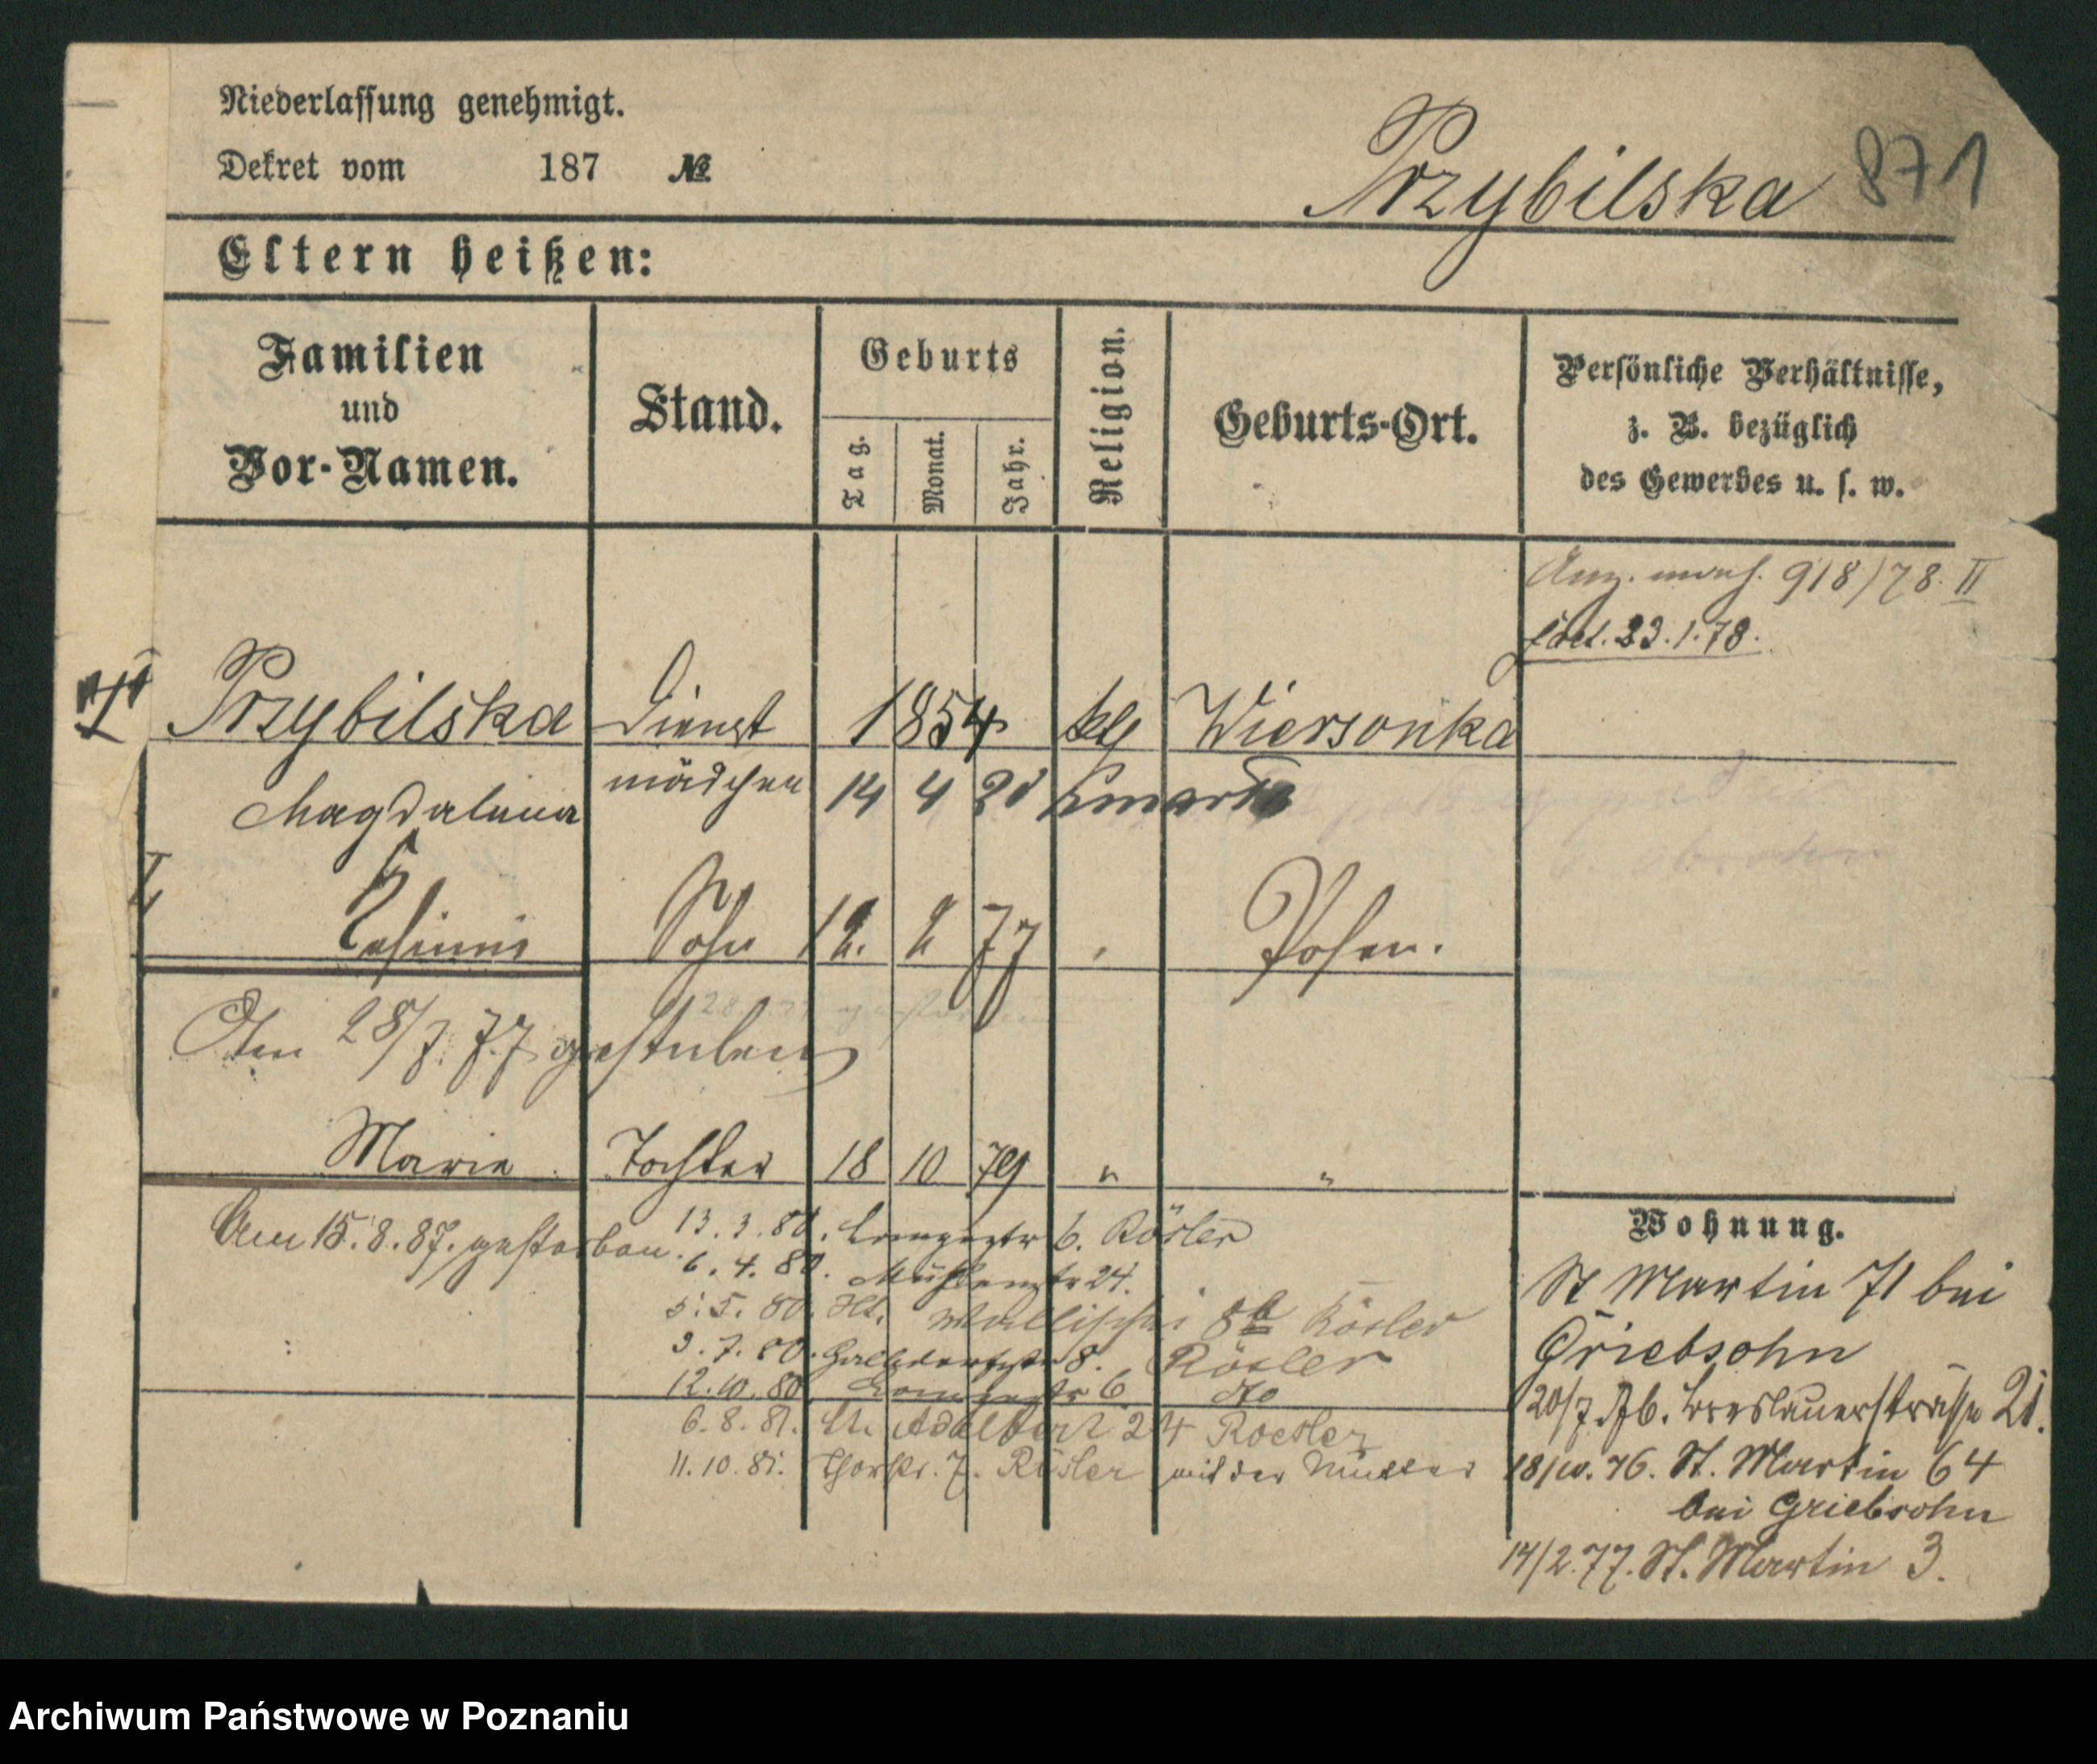 Niederlassung genehmigt.
Dekret vom 187 №
Przybilska 871
Eltern heißen:
Familien und Vor-Namen.
Stand.
Geburts
Tag.
Monat.
Jahr.
Religion.
Geburts-Ort.
Persönliche Verhältnisse,
z. B. bezüglich
des Gewerbes u. s. w.
918/78. II
23.1.78.
Przybilska Dienst 1854 klg Wiersonka
Magdalena mädchen 14 4
Casimir Sohn 12. 2 77 Posen.
Den 28/7. 77 gestorben
Marie Tochter 18 10 79 " "
Am 15.8.87. gestorben.
13.3.80. 6. Rösler
6.4.80. Mühlenstr 24.
5.5.80. Wallischei 8b Rösler
3.7.80. Halbdorfstr 8. Rösler
12.10.80 6 do
6.8.81. St. Adalbert 24 Roesler
11.10.81. Thorstr. 7. Rösler mit der Mutter
Wohnung.
St Martin 71 bei
Griebsohn
20/7.76. Breslauerstraße 21.
18/10.76. St. Martin 64
bei Griebsohn
14/2.77. St. Martin 3.
Archiwum Państwowe w Poznaniu